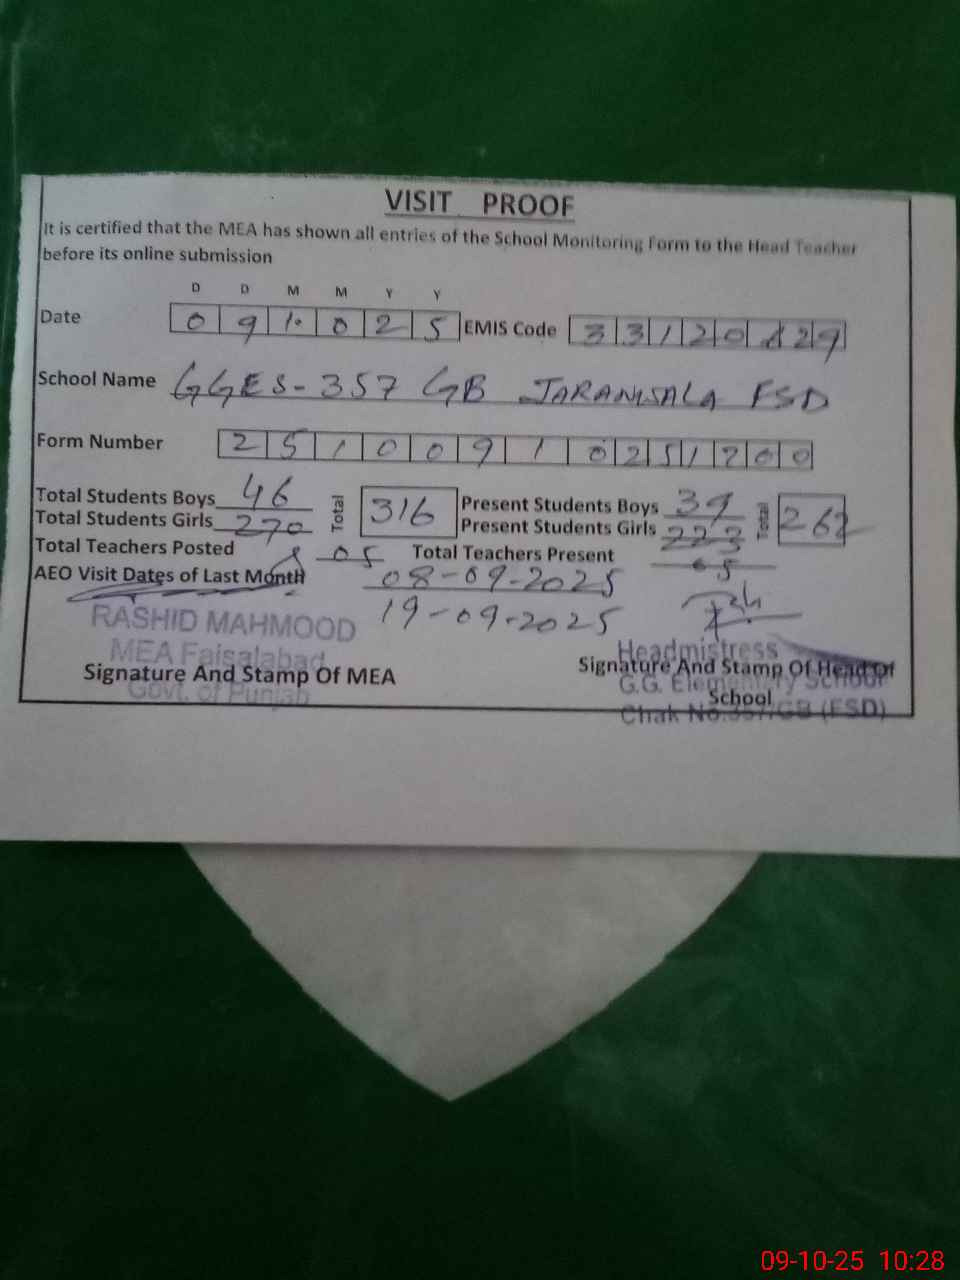 VISIT PROOF
It is certified that the MEA has shown all entries of the School Monitoring Form to the Head Teacher
before its online submission
D D M M Y Y
Date 0 9 1 0 2 5 EMIS Code 3 3 1 2 0 4 2 9
School Name GGES-357 GB JARANWALA FSD
Form Number 2 5 1 0 0 9 1 0 2 5 1 2 0 0
Total Students Boys 46 Total 316 Present Students Boys 39 Total 262
Total Students Girls 270 Present Students Girls 223
Total Teachers Posted 05 Total Teachers Present 05
AEO Visit Dates of Last Month 08-09-2025
19-09-2025
RASHID MAHMOOD
MEA Faisalabad
Govt. of Punjab
Signature And Stamp Of MEA
Headmistress
G.G. Elementary School
Chak No.357/GB (FSD)
Signature And Stamp Of Head Of
School
09-10-25 10:28